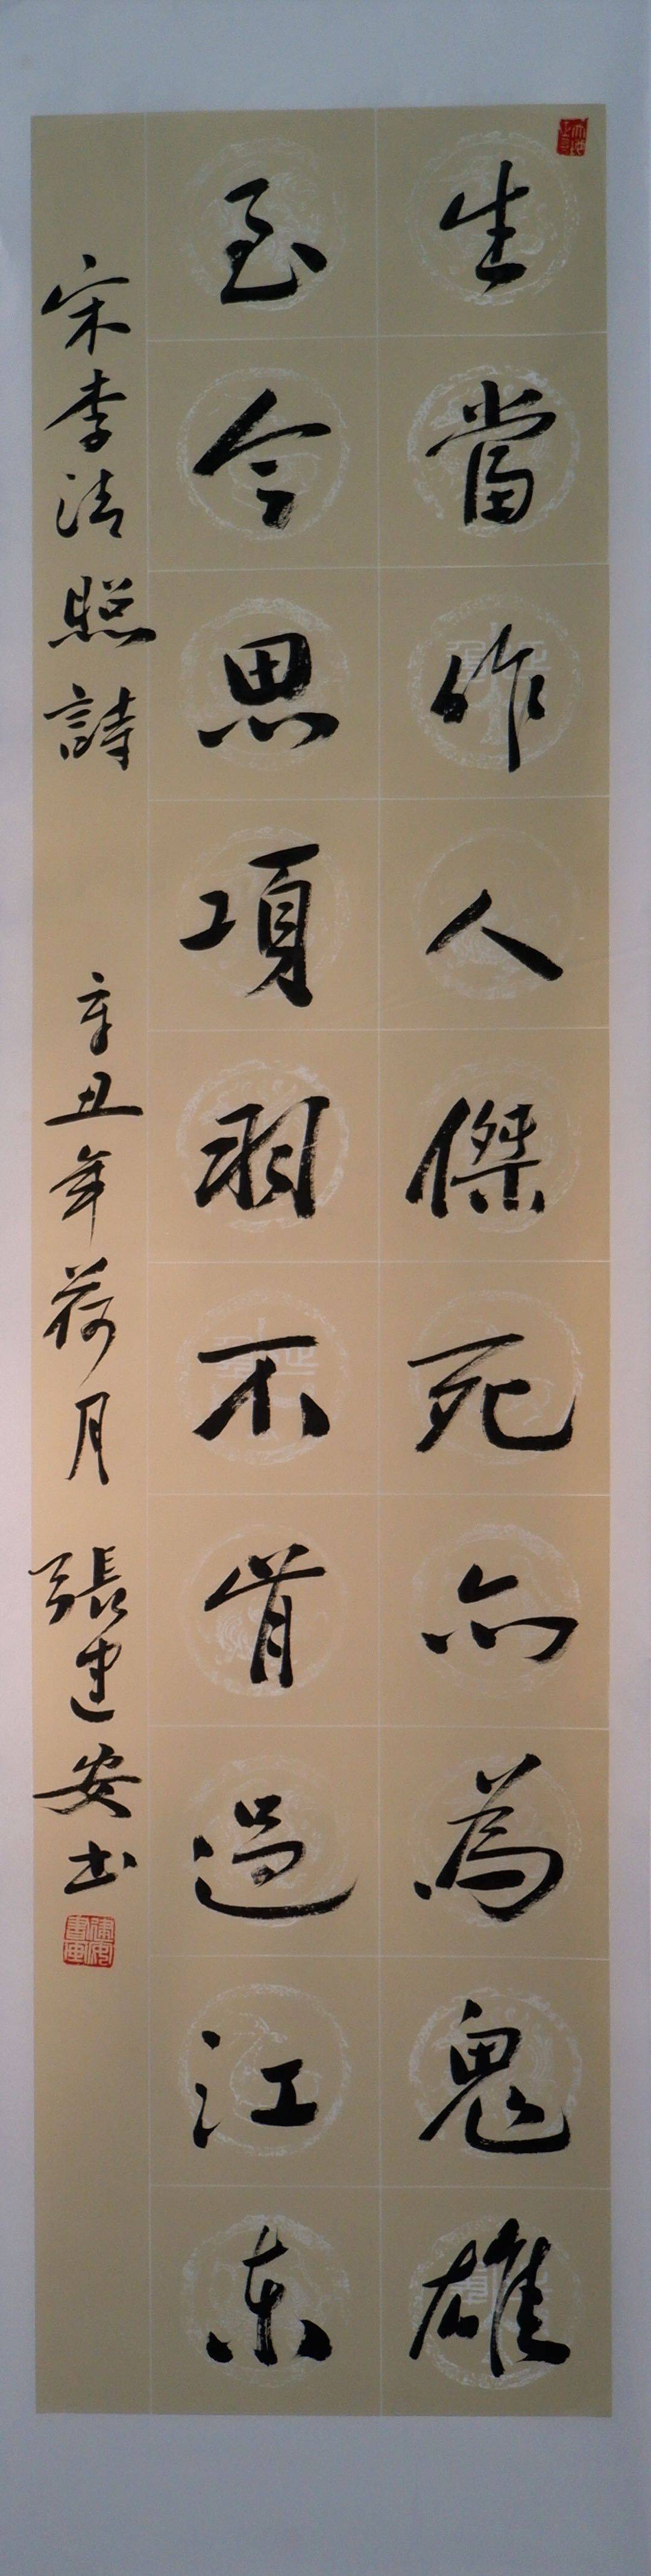 生當作人傑死亦為鬼雄
至今思項羽不肯過江东
宋李清照詩 辛丑年荷月 張建安书